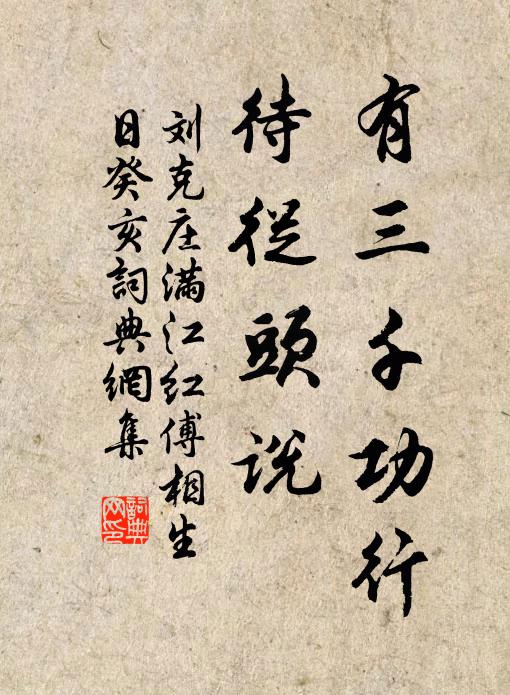 有三千功行
待從頭説
刘克庄满江红傅相生
日癸亥詞典網集
詞典
网印